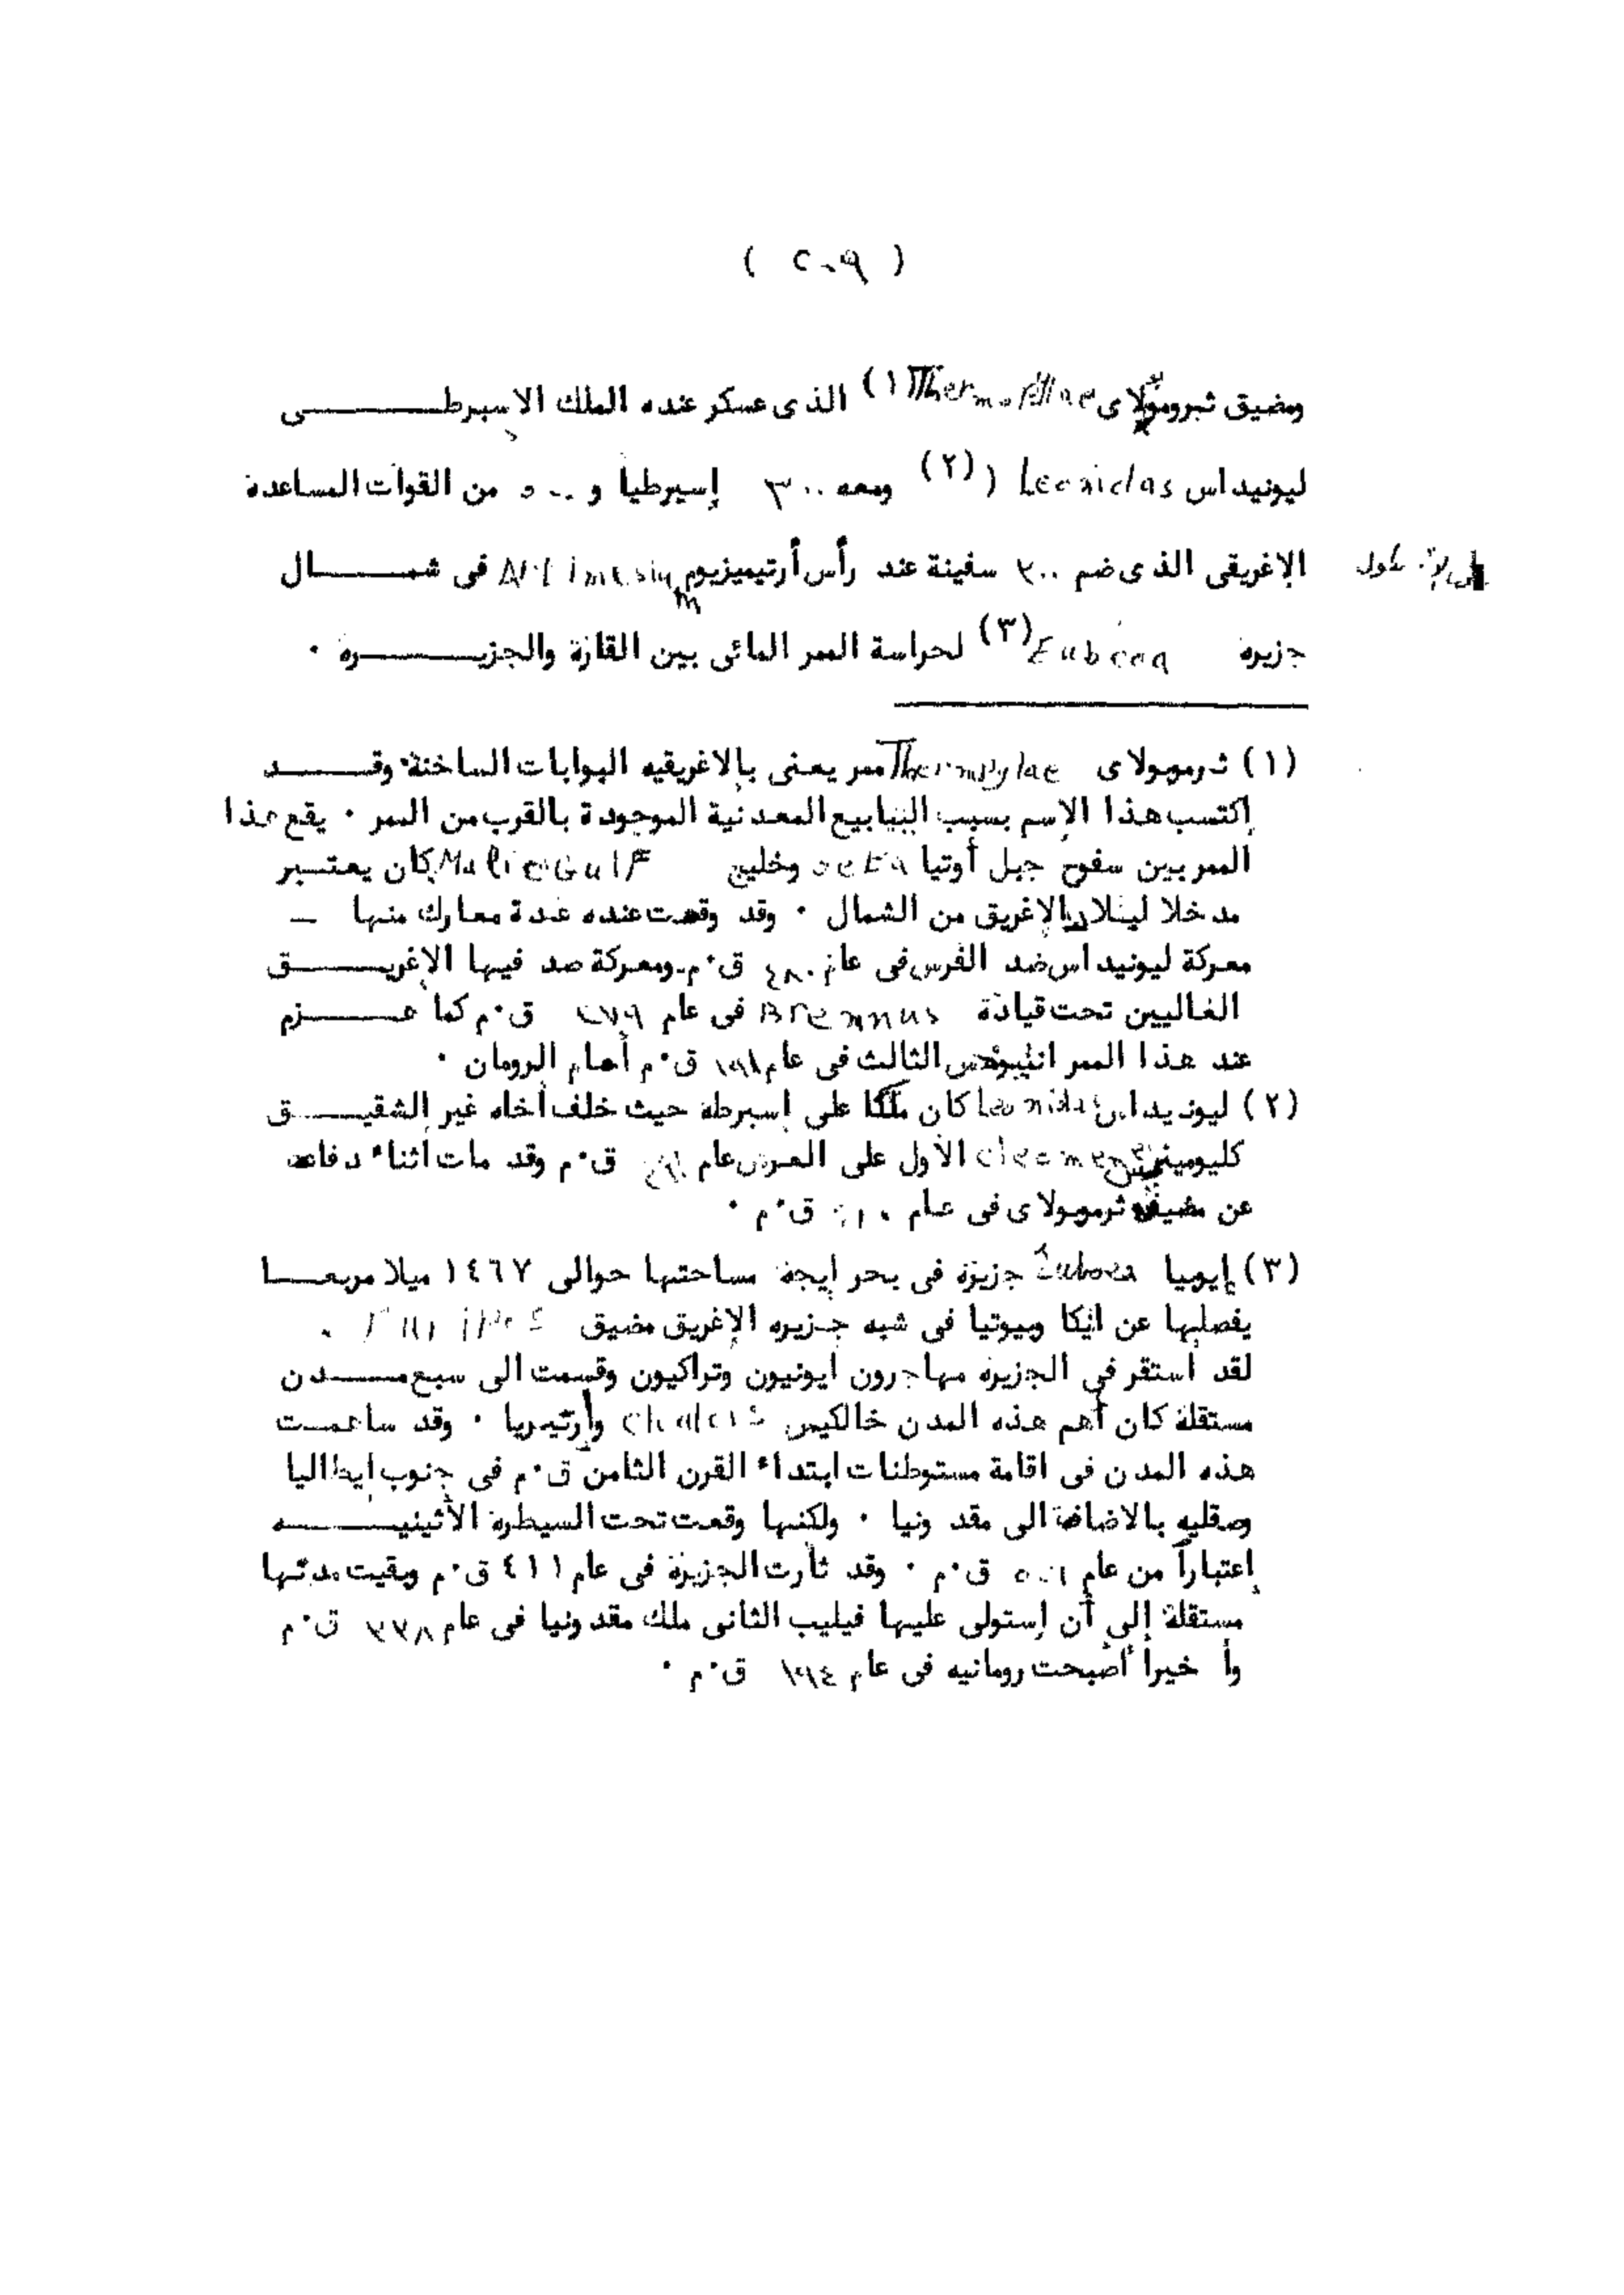 ( ٢٠٩ )
ومضيق ثيرومولاى Thermopylae (١) الذى عسكر عنده الملك الاسبرطى
ليونيداس Leonidas (٢) ومعه ٣٠٠ إسبرطيا و ٥٠٠ من القوات المساعدة
الإغريقى الذى ضم ٢٠٠ سفينة عند رأس أرتيميزيوم Artimesium فى شمال
جزيره Euboea (٣) لحراسة الممر المائى بين القارة والجزيره ٠
(١) ثرموبولاى Thermopylae ممر يعنى بالاغريقيه البوابات الساخنة٠ وقد
إكتسب هذا الإسم بسبب الينابيع المعدنية الموجودة بالقرب من الممر ٠ يقع هذا
الممر بين سفوح جبل أوتيا oeta وخليج Malic Gulf كان يعتبر
مدخلا لبلاد الإغريق من الشمال ٠ وقد وقعت عنده عدة معارك منها –
معركة ليونيداس ضد الفرس فى عام ٤٨٠ ق٠م ومعركة صد فيها الإغريق
الغاليين تحت قيادة Brennus فى عام ٢٧٩ ق٠م كما هزم
عند هذا الممر الثالث فى عام ١٩١ ق٠م أمام الرومان ٠
(٢) ليونيداس Leonidas كان ملكا على إسبرطه حيث خلف أخاه غير الشقيق
الأول على العرش عام ق٠م وقد مات أثناء دفاعه
عن مضيق ثرموبولاى فى عام ق٠م ٠
(٣) إيوبيا Euboea جزيرة فى بحر إيجة مساحتها حوالى ١٤٦٧ ميلا مربعا
يفصلها عن اتيكا وبيوتيا فى شبه جزيره الإغريق مضيق ٠
لقد استقر في الجزيره مهاجرون ايونيون وتراكيون وقسمت الى سبع مدن
مستقلة كان أهم هذه المدن خالكيس chalcis وأرتيريا ٠ وقد ساهمت
هذه المدن فى اقامة مستوطنات ابتداء القرن الثامن ق٠م فى جنوب إيطاليا
وصقليه بالاضافة الى مقدونيا ٠ ولكنها وقعت تحت السيطره الأثينيه
إعتباراً من عام ٥٠٦ ق٠م ٠ وقد ثارت الجزيرة فى عام ٤١١ ق٠م وبقيت مدنها
مستقلة إلى أن إستولى عليها فيليب الثانى ملك مقدونيا فى عام ٣٣٨ ق٠م
وأ خيراً أصبحت رومانيه فى عام ١٩٤ ق٠م ٠